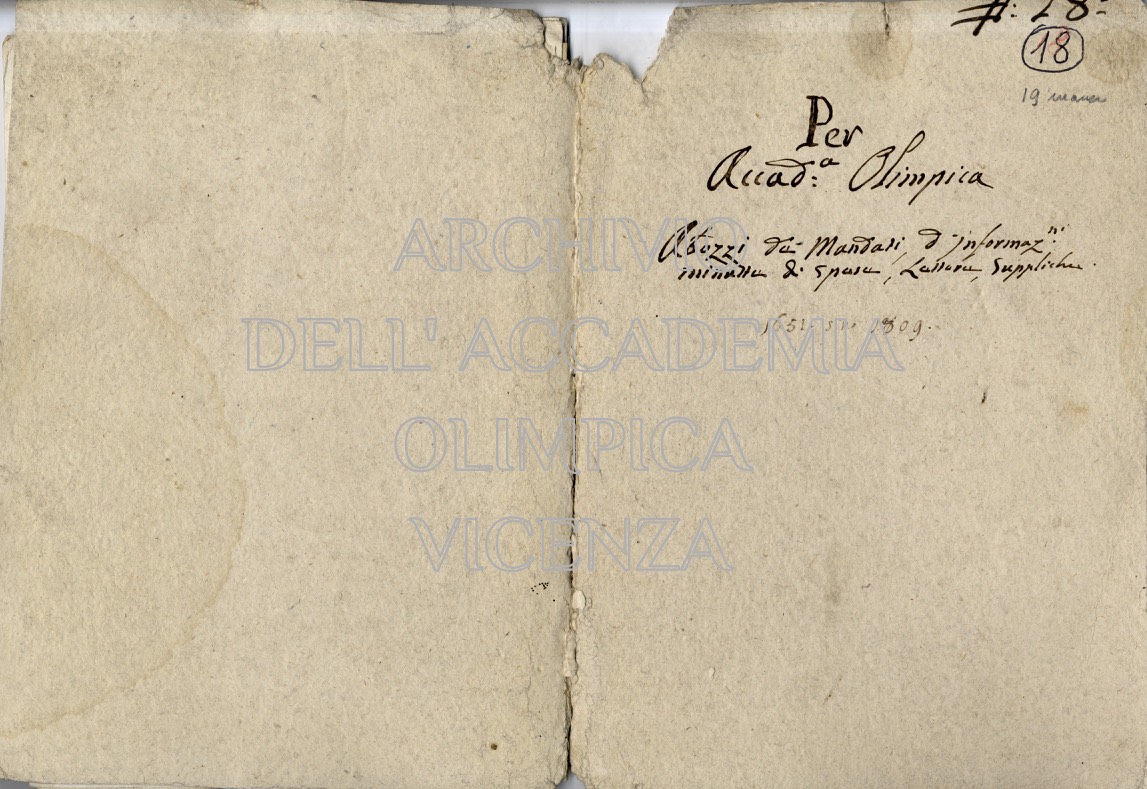 #: 28:
18
19
Per
Accad:ª Olimpica
Abozzi de Mandati, d'informaz:ni
minutte di spese, Lettere, Suppliche.
1809.
ARCHIVIO
DELL'ACCADEMIA
OLIMPICA
VICENZA